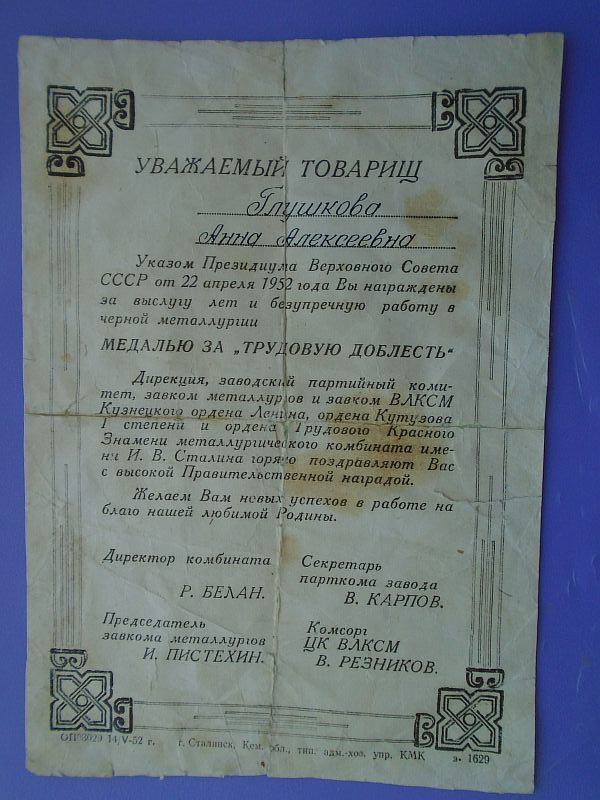 УВАЖАЕМЫЙ ТОВАРИЩ
Глушкова
Анна Алексеевна
Указом Президиума Верховного Совета
СССР от 22 апреля 1952 года Вы награждены
за выслугу лет и безупречную работу в
черной металлургии
МЕДАЛЬЮ ЗА „ТРУДОВУЮ ДОБЛЕСТЬ“
Дирекция, заводский партийный коми-
тет, завком металлургов и завком ВЛКСМ
Кузнецкого ордена Ленина, ордена Кутузова
I степени и ордена Трудового Красного
Знамени металлургического комбината име-
ни И. В. Сталина горячо поздравляют Вас
с высокой Правительственной наградой.
Желаем Вам новых успехов в работе на
благо нашей любимой Родины.
Директор комбината
Р. БЕЛАН.
Секретарь
парткома завода
В. КАРПОВ.
Председатель
завкома металлургов
И. ПИСТЕХИН.
Комсорг
ЦК ВЛКСМ
В. РЕЗНИКОВ.
14/V-52 г. г. Сталинск, Кем. обл., тип. адм.-хоз. упр. КМК з. 1629